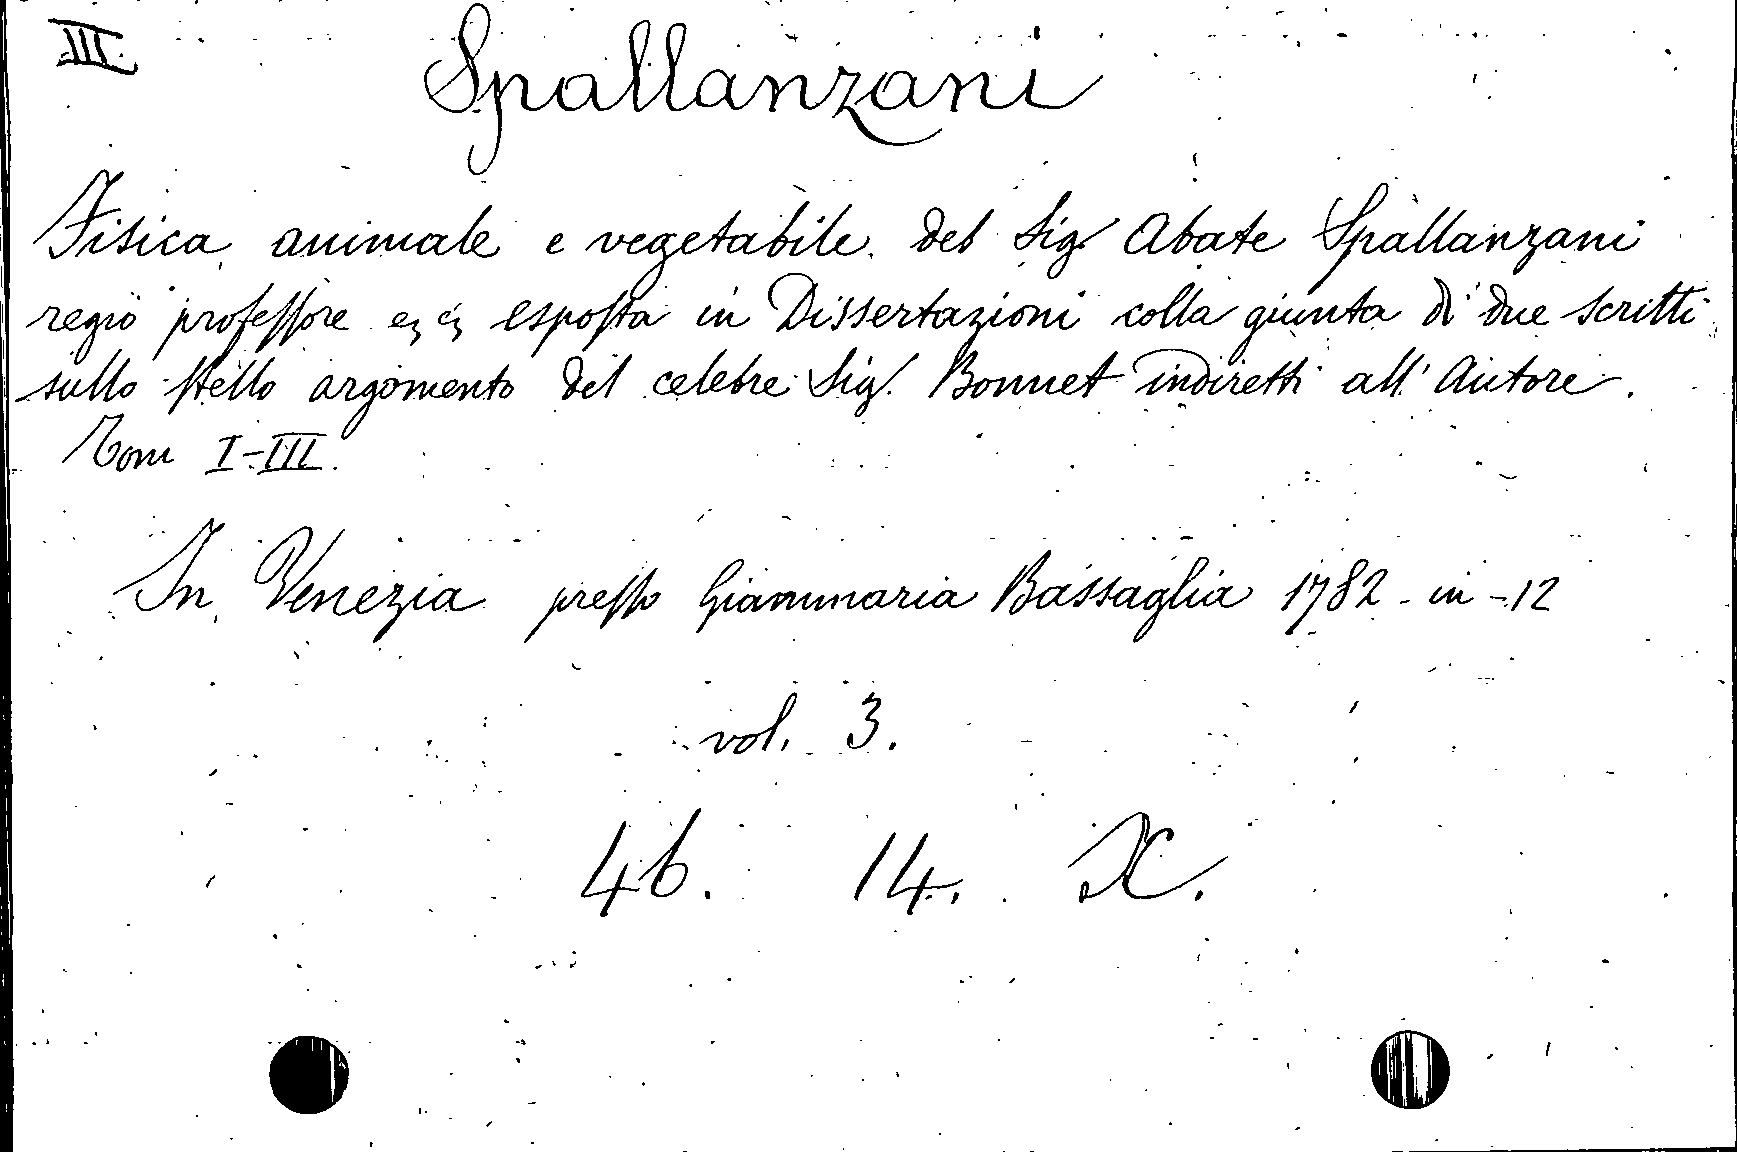 III.
Spallanzani
Fisica animale e vegetabile del Sig. Abate Spallanzani
regio professore ec ec esposta in Dissertazioni colla giunta di due scritti
sullo stesso argomento del celebre Sig. Bonnet indiretti all' Autore.
Tom I-III.
In Venezia presso Giammaria Bassaglia 1782 - in -12
vol. 3.
46. 14. X.